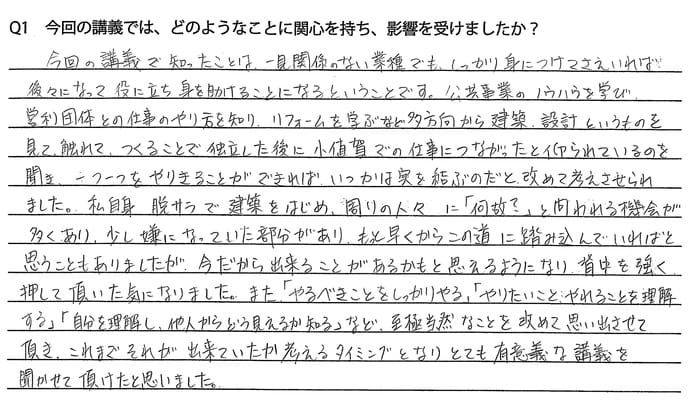 Q1　今回の講義では、どのようなことに関心を持ち、影響を受けましたか？
今回の講義で知ったことは、一見関係のない業種でも、しっかり身につけてさえいれば
後々になって役に立ち身を助けることになるということです。公共事業のノウハウを学び、
営利団体との仕事のやり方を知り、リフォームを学ぶなど多方向から建築、設計というものを
見て、触れて、つくることで独立した後に小値賀での仕事につながったと仰られているのを
聞き、一つ一つをやりきることができれば、いつかは実を結ぶのだと改めて考えさせられ
ました。私自身 脱サラで建築をはじめ、周りの人々 に「何故？」と問われる機会が
多くあり、少し嫌になっていた部分があり、もっと早くからこの道に踏み込んでいればと
思うこともありましたが、今だから出来ることがあるかもと思えるようになり、背中を強く
押して頂いた気になりました。また、「やるべきことをしっかりやる」「やりたいこと、やれることを理解
する」「自分を理解し、他人からどう見えるか知る」など、至極当然なことを改めて思い出させて
頂き、これまでそれが出来ていたか考えるタイミングとなりとても有意義な講義を
聞かせて頂けたと思いました。